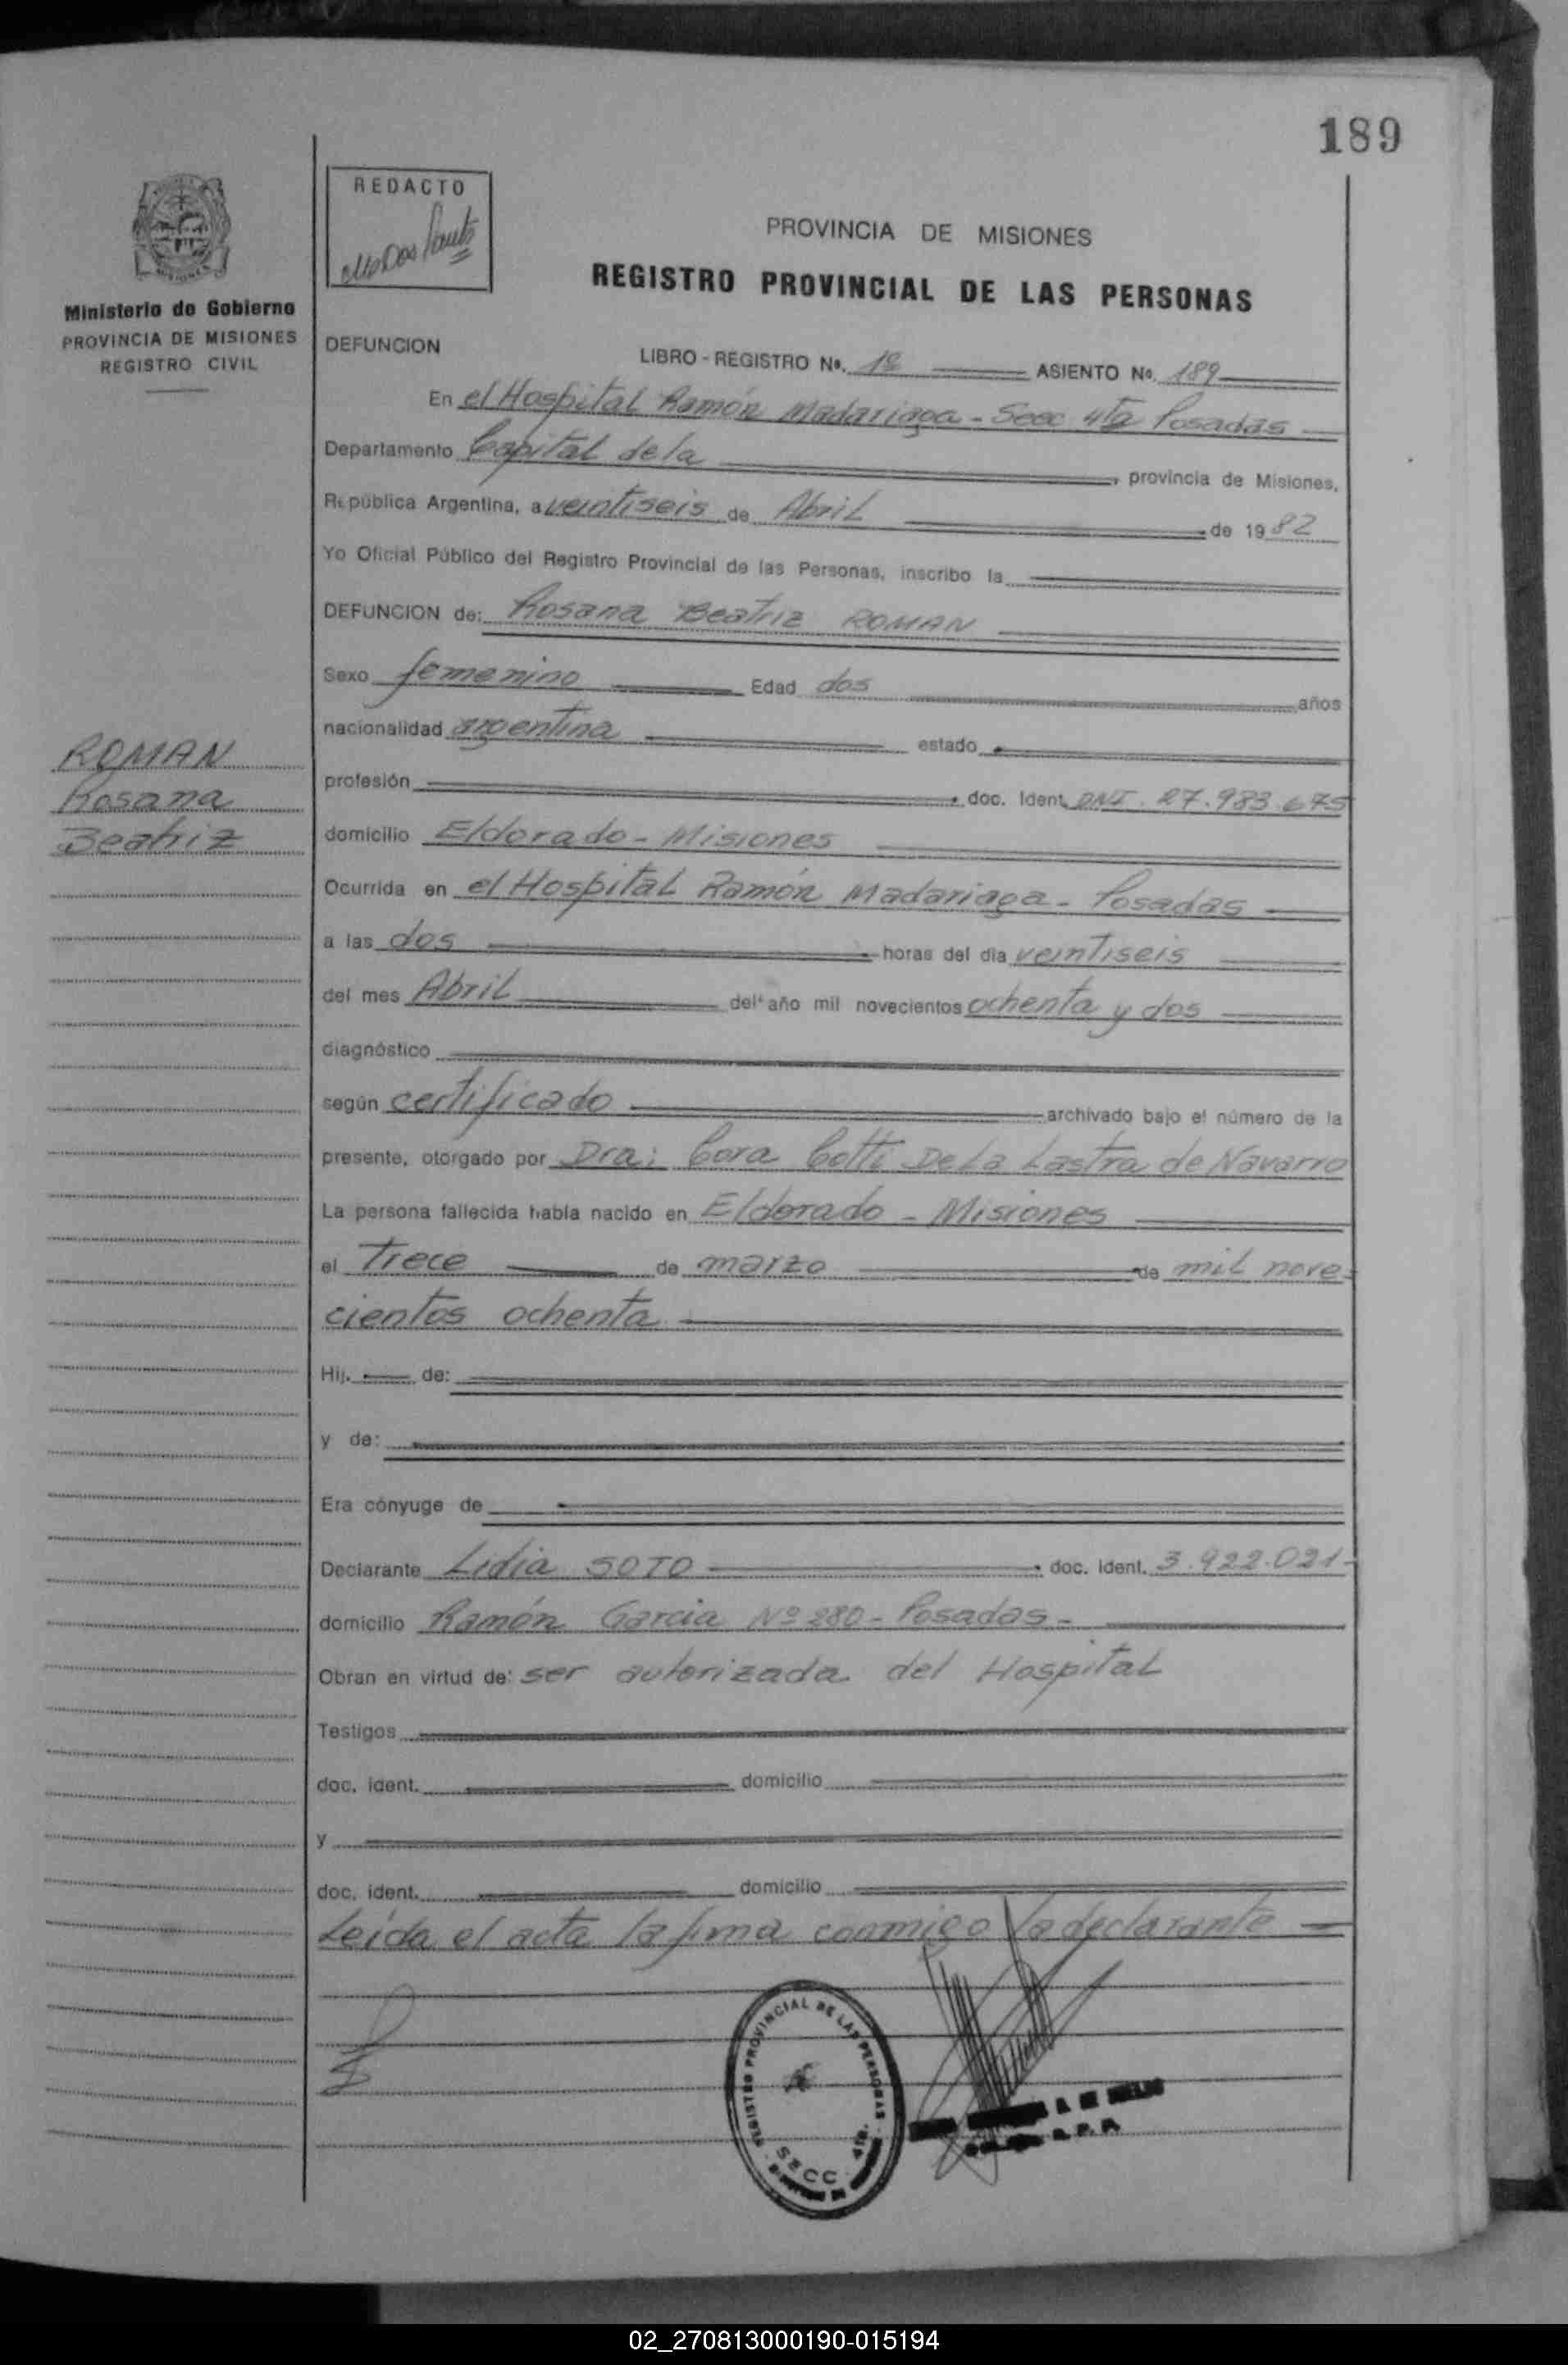 189
REDACTO
PROVINCIA DE MISIONES
REGISTRO PROVINCIAL DE LAS PERSONAS
Ministerio de Gobierno
PROVINCIA DE MISIONES
REGISTRO CIVIL
DEFUNCION
LIBRO - REGISTRO Nº. ASIENTO Nº. 189
En el Hospital Ramón Madariaga - Secc 4ta Posadas
Departamento Capital de la provincia de Misiones,
República Argentina, a veintiseis de Abril de 1982
Yo Oficial Público del Registro Provincial de las Personas, inscribo la
DEFUNCION de: Rosana Beatriz ROMAN
Sexo femenino Edad dos años
nacionalidad argentina estado
profesión doc. Ident. DNI. 27.983.675
domicilio Eldorado - Misiones
Ocurrida en el Hospital Ramón Madariaga - Posadas
a las dos horas del día veintiseis
del mes Abril del año mil novecientos ochenta y dos
diagnóstico
según certificado archivado bajo el número de la
presente, otorgado por Dra: Cora Cotti De La Lastra de Navarro
La persona fallecida había nacido en Eldorado - Misiones
el Trece de marzo de mil nove-
cientos ochenta
Hij. de:
y de:
Era cónyuge de
Declarante Lidia SOTO doc. Ident. 3.922.021-
domicilio Ramón Garcia Nº 280 - Posadas -
Obran en virtud de: ser autorizada del Hospital
Testigos
doc. ident. domicilio
y
doc. ident. domicilio
Leída el acta la firma conmigo la declarante
ROMAN
Rosana
Beatriz
REGISTRO PROVINCIAL DE LAS PERSONAS
SECC. 4ta.
02_270813000190-015194